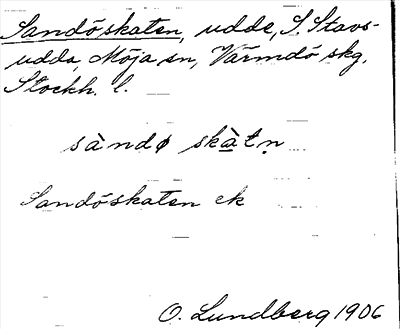 Sandöskaten, udde, S. Stavs-
udda, Möja sn, Värmdö skg,
Stockh. l.
sàndø skàtṇ
Sandöskaten ek
O. Lundberg 1906